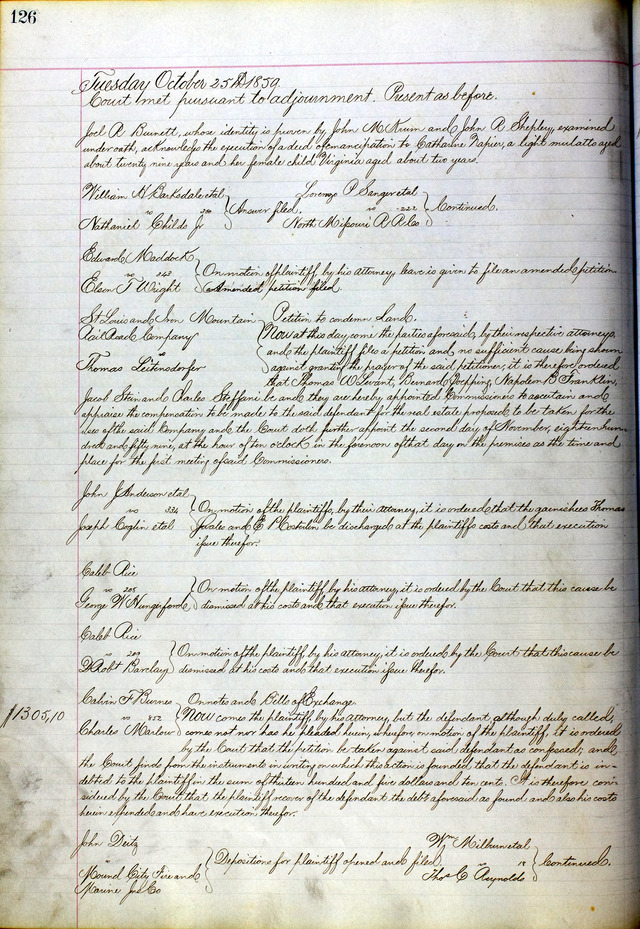 126
Tuesday October 25th 1859
Court met pursuant to adjournment. Present as before.
Joel R Burnett, whose identity is proven by John M Krum and John R Shepley, examined
under oath, acknowledges the execution of a deed of emancipation to Catharine Napier, a light mulatto aged
about twenty nine years and her female child Virginia aged about two years.
William H Barksdale et al
Nathaniel Childs Jr
Answer filed.
Lorenzo P Sanger et al
vs 222
North Missouri R R Co
Continued.
Edward Maddock
vs 243
Eben T Wight
On motion of plaintiff, by his attorney, leave is given to file an amended petition.
Amended petition filed
St Louis and Iron Mountain
Rail Road Company
vs
Thomas Leitensdorfer
Petition to condemn Land.
Now at this day come the parties aforesaid, by their respective attorneys,
and the plaintiff files a petition and, no sufficient cause being shown
against granting the prayer of the said petitioner; it is therefore ordered
that Thomas W Levant, Bernard Poepping, Napoleon B Franklin,
Jacob Stein and Charles Steffani be and they are hereby appointed Commissioners to ascertain and
appraise the compensation to be made to the said defendant for the real estate proposed to be taken for the
use of the said Company and the Court doth further appoint the second day of November, eighteen hun-
dred and fifty nine, at the hour of ten o'clock in the forenoon of that day on the premises as the time and
place for the first meeting of said Commissioners.
John J Anderson et al
vs 334
Joseph Coglin et al
On motion of the plaintiffs, by their attorney, it is ordered that the garnishees Thomas
and E P be discharged at the plaintiffs costs and that execution
issue therefor.
Caleb Rice
vs 205
George W Hungerford
On motion of the plaintiff by his attorney, it is ordered by the Court that this cause be
dismissed at his costs and that execution issue therefor.
Caleb Rice
vs 209
D Robt Barclay
On motion of the plaintiff, by his attorney, it is ordered by the Court that this cause be
dismissed at his costs and that execution issue therefor.
Calvin F Burnes
vs 852
Charles Marlow
On notes and Bills of Exchange.
$1305,10
Now comes the plaintiff by his attorney, but the defendant, although duly called,
comes not nor has he pleaded herein, wherefore, on motion of the plaintiff, it is ordered
by the Court that the petition be taken against said defendant as confessed; and
the Court finds from the instruments in writing on which this action is founded, that the defendant is in-
debted to the plaintiff in the sum of thirteen hundred and five dollars and ten cents. It is therefore con-
sidered by the Court that the plaintiff recover of the defendant the debt aforesaid as found and also his costs
herein expended and have execution therefor.
John Deitz
vs
Mound City Fire and
Marine Ins Co
Depositions for plaintiff opened and filed
Wm Milburn et al
vs 18
Thos C Reynolds
Continued.